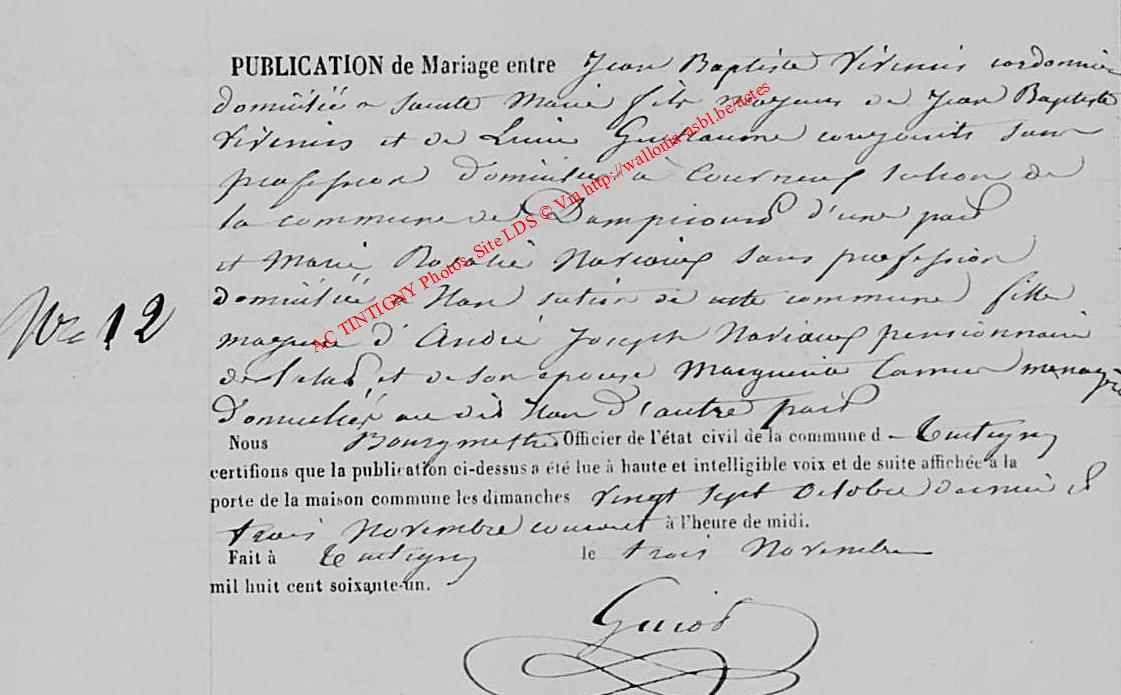 PUBLICATION de Mariage entre Jean Baptiste Vivinus cordonnier
domicilié a Sainte Marie fils majeur de Jean Baptiste
Vivinus et de Lucie Guillaume conjoints sans
profession domiciliés à section de
la commune de Dampicourt d'une part
et Marie Rosalie sans profession
domiciliée a Han section de cette commune fille
majeure d'André Joseph pensionnair
de l'etat, et de son epouse Marguerite menagère
Domiciliés au dit Han d'autre part
Nous Bourgmestre Officier de l'état civil de la commune d e Tintigny
certifions que la publication ci-dessus a été lue à haute et intelligible voix et de suite affichée à la
porte de la maison commune les dimanches vingt sept Octobre dernier et
trois Novembre courant à l'heure de midi.
Fait à Tintigny le trois Novembre
mil huit cent soixante-un.
No 12
Guiot
AC TINTIGNY Photos, Site LDS © Via http://wallonia-asbl.be/actes